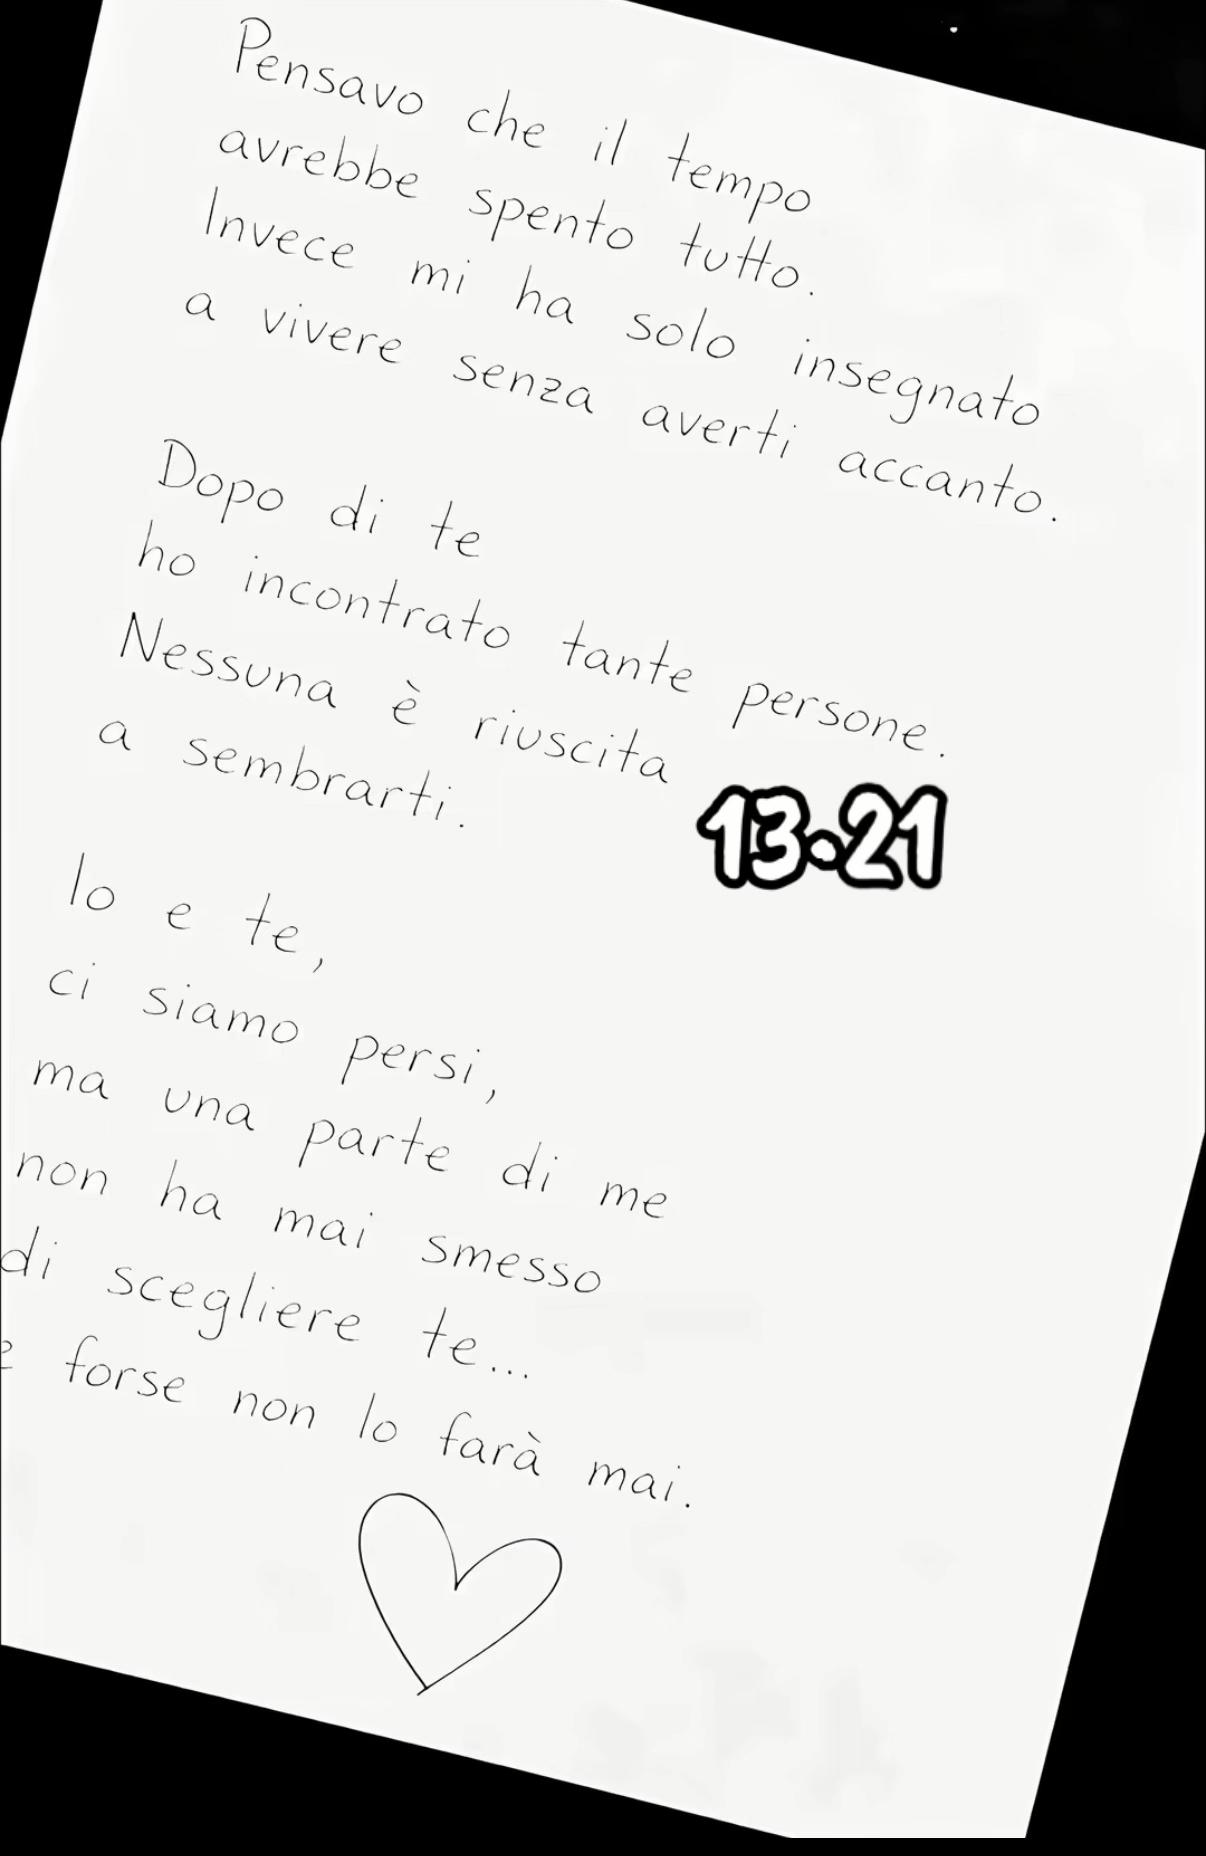 Pensavo che il tempo
avrebbe spento tutto.
Invece mi ha solo insegnato
a vivere senza averti accanto.
Dopo di te
ho incontrato tante persone.
Nessuna è riuscita
a sembrarti.
13.21
Io e te,
ci siamo persi,
ma una parte di me
non ha mai smesso
di scegliere te...
e forse non lo farà mai.